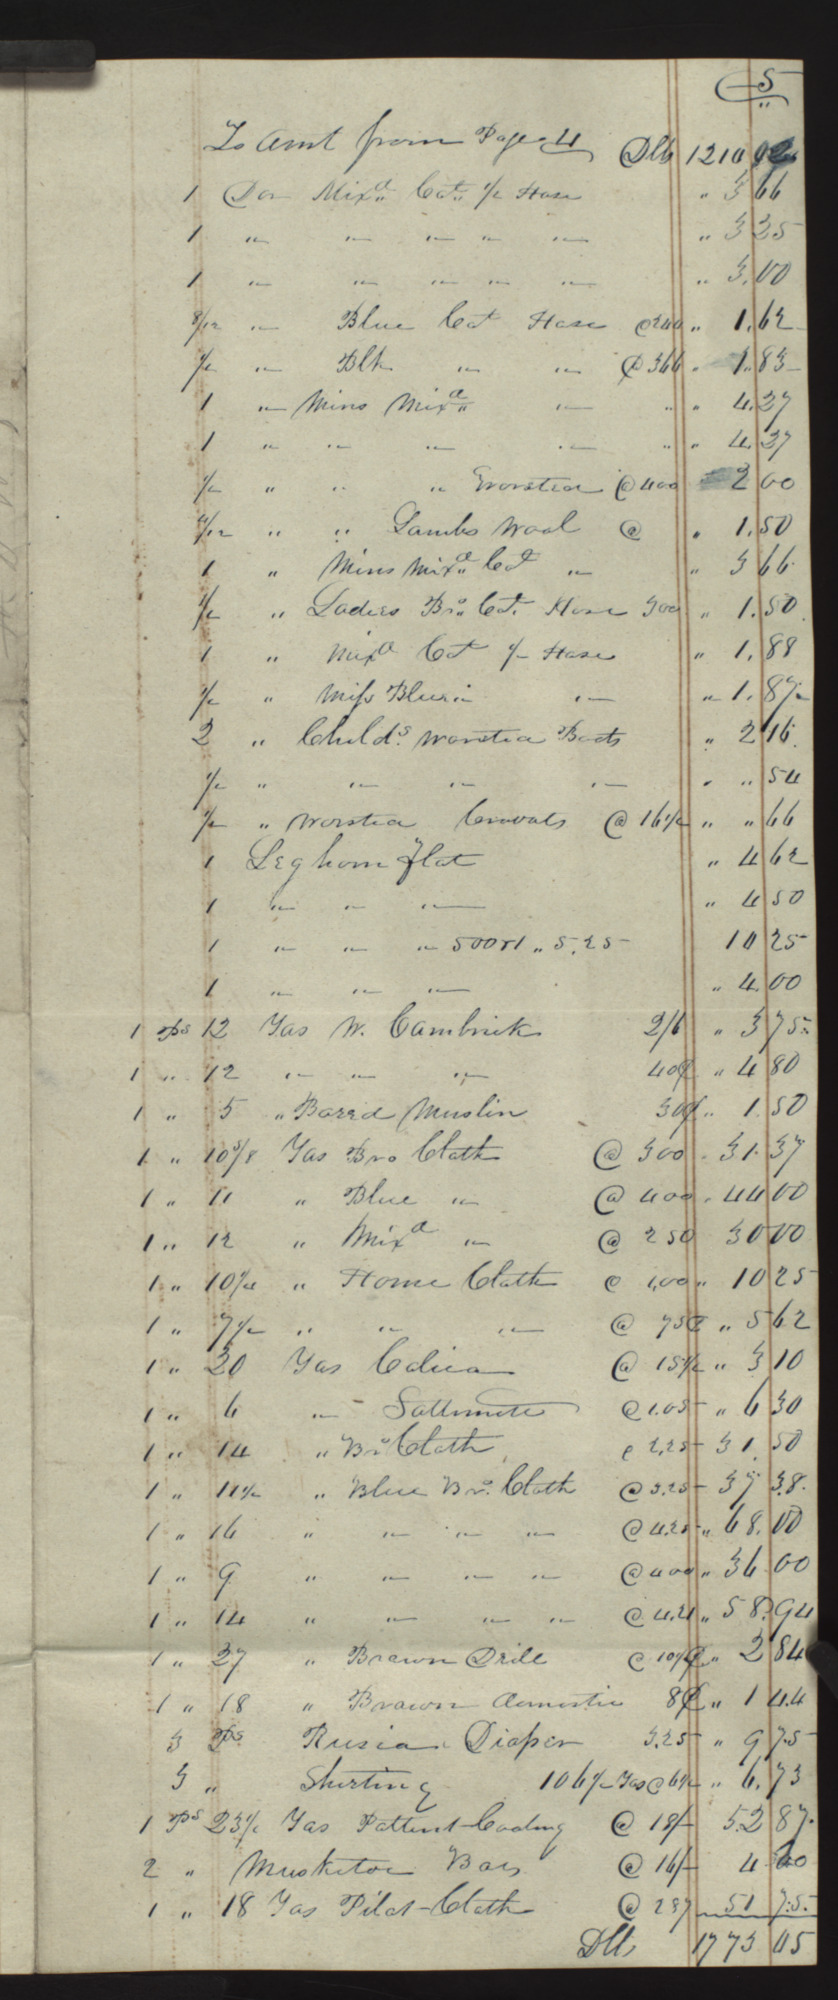 5
To Amt from Page 4 Dlls 1210 02
1 Doz Mixd Cot 1/2 Hose " 3 66
1 " " " " " " 3 25
1 " " " " " " 3.00
8/12 " Blue Cot Hose @ 240 " 1.62
1/2 " Blk " " @ 366 " 1.83
1 " Mins Mixd " " " 4.27
1 " " " " " " 4.27
1/2 " " " Worsted @ 400 2 00
" " Lambs Wool @ " 1.50
1 " Mins Mixd Cot " " 3 66
1/2 " Ladies Bro Cot. Hose 300 " 1.50
1 " Mixd Cot 1/2 Hose " 1.88
1/2 " Miss " " 1.87
2 " Childs Worsted Boots " 2 16
1/2 " " " " " " 54
1/2 " Worsted Cravats @ 16 1/2 " " 66
1 Leghorn Flat " 4 62
1 " " " " 4 50
1 " " " " 5.25 10 25
1 " " " " 4.00
1 ps 12 Yds W. Cambrick 2/6 " 3 75
1 " 12 " " " 40¢ " 4 80
1 " 5 " Bared Muslin 30¢ " 1.50
1 " 10 5/8 Yds Bro Cloth @ 300 " 31.37
1 " 11 " Blue " @ 400 " 44 00
1 " 12 " Mixd " @ 250 30 00
1 " 10 1/4 " Home Cloth @ 1,00 " 10 25
1 " 7 1/2 " " " @ 75¢ " 5 62
1 " 20 Yds Calico @ 15 1/2 " 3 10
1 " 6 " Sattinette @ 1.05 " 6 30
1 " 14 " Br Cloth @ 2,25 31.50
1 " 11 1/2 " Blue Bro. Cloth @ 3.25 37 38
1 " 16 " " " " @ 4.25 " 68.00
1 " 9 " " " " @ 400 " 36 00
1 " 14 " " " " @ 4.21 " 58.94
1 " 27 " Brown Drill @ 10 1/2¢ " 2 84
1 " 18 " Brown domestic 8¢ " 1 44
3 Ps Rusia Diaper 3.25 " 9 75
3 " Shirting 106 1/2 Yds @ 6 1/2 " 6.73
1 Ps 23 1/2 Yds Pattent Coding @ 18/ 52 87
2 " Musketoe Bars @ 16/ 4 00
1 " 18 Yds Pilot Cloth @ 287 51 75
Dlls 1773 05